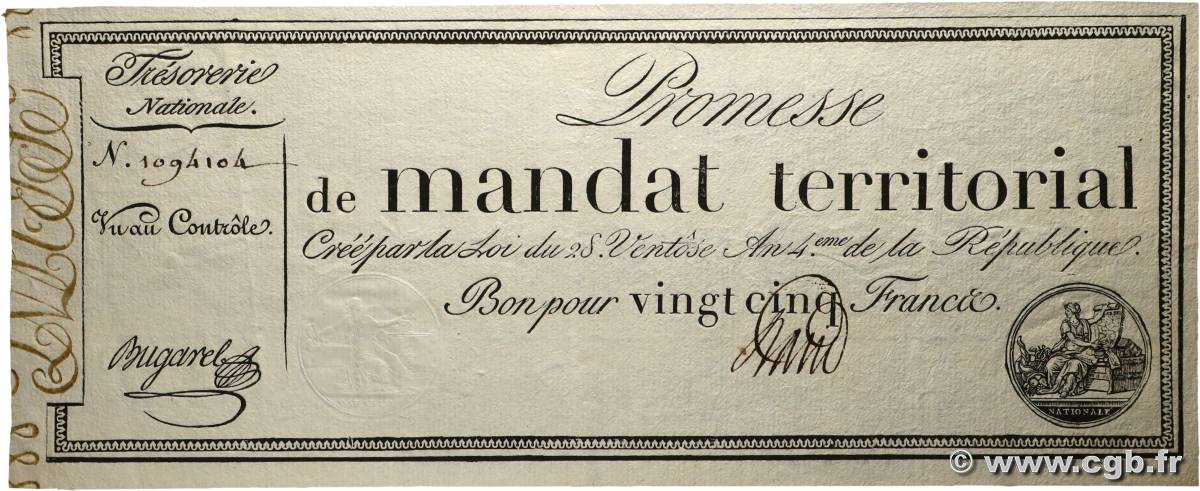 Trésorerie
Nationale.
N. 1094104
Vu au Contrôle.
Bugarel
Promesse
de mandat territorial
Créé par la Loi du 28. Ventôse An 4.eme de la République.
Bon pour vingt cinq Francs.
NATIONALE
© www.cgb.fr